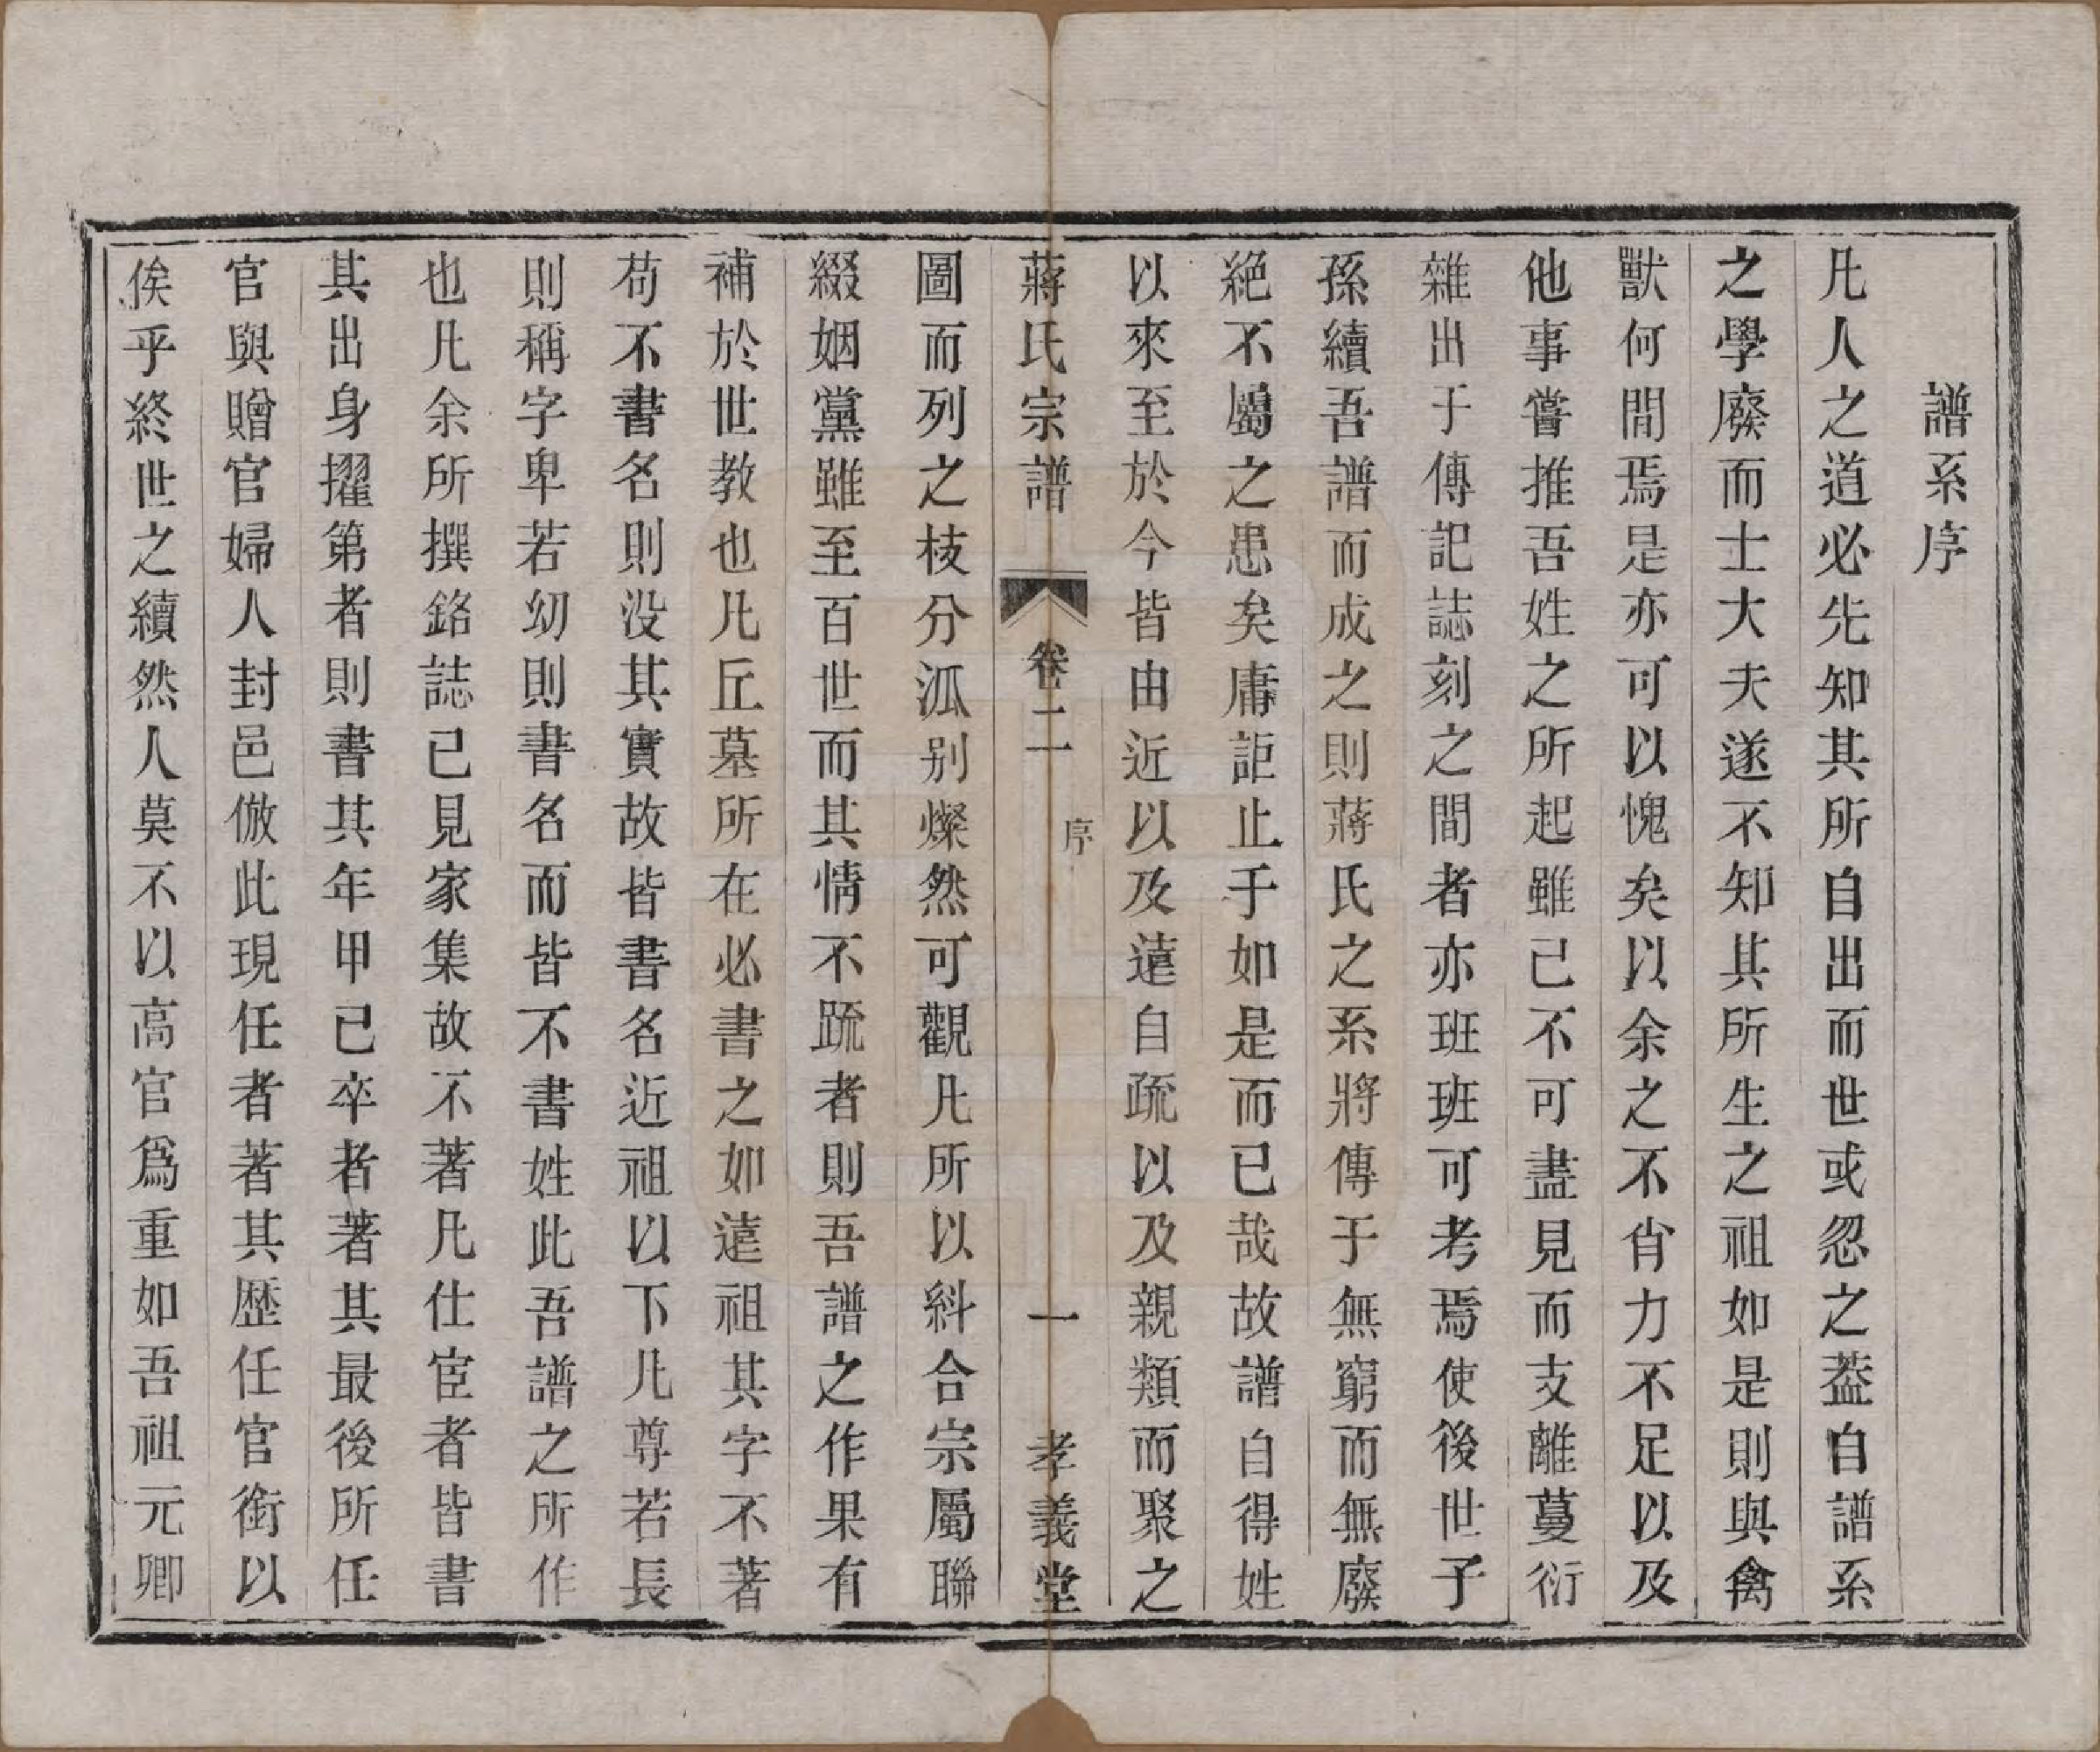 譜系序
凡人之道必先知其所自出而世或忽之葢自譜系
之學廢而士大夫遂不知其所生之祖如是則與禽
獸何間焉是亦可以愧矣以余之不肖力不足以及
他事嘗推吾姓之所起雖已不可盡見而支離蔓衍
雜出于傳記誌刻之間者亦班班可考焉使後世子
孫續吾譜而成之則蔣氏之系將傳于無窮而無廢
絕不屬之患矣庸詎止于如是而已哉故譜自得姓
以來至於今皆由近以及遠自疏以及親類而聚之
蔣氏宗譜 卷二 序 一 孝義堂
圖而列之枝分泒别燦然可觀凡所以糾合宗屬聯
綴姻黨雖至百世而其情不䟽者則吾譜之作果有
補於世教也凡丘墓所在必書之如遠祖其字不著
苟不書名則没其實故皆書名近祖以下凡尊若長
則稱字卑若幼則書名而皆不書姓此吾譜之所作
也凡余所撰銘誌已見家集故不著凡仕宦者皆書
其出身擢第者則書其年甲已卒者著其最後所任
官與贈官婦人封邑倣此現任者著其歷任官銜以
俟乎終世之續然人莫不以高官爲重如吾祖元卿